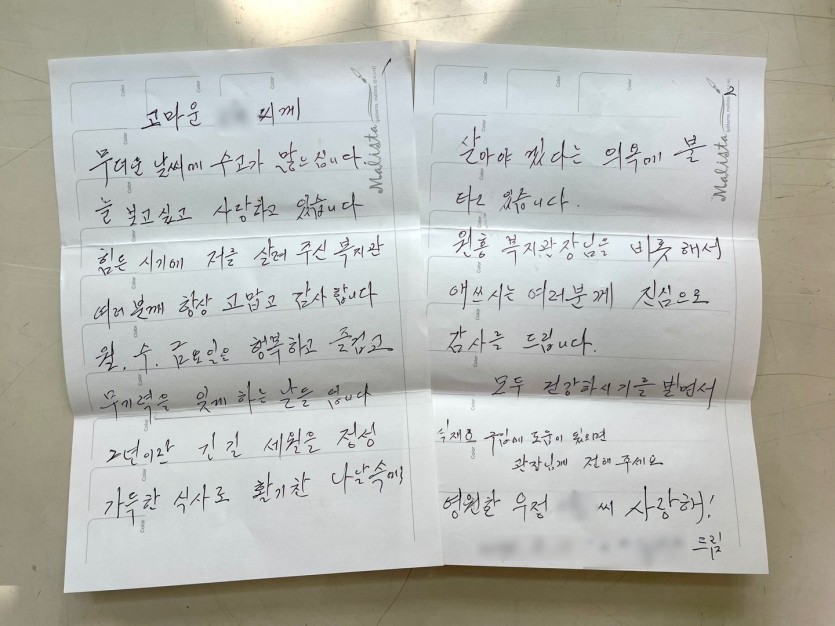 고마운 씨께
무더운 날씨에 수고가 많으십니다.
늘 보고싶고 사랑하고 있습니다
힘든 시기에 저를 살려 주신 복지관
여러분께 항상 고맙고 감사합니다
월, 수, 금요일은 행복하고 즐겁고
무기력을 잊게 하는 날들 입니다
2년이란 긴긴 세월을 정성
가득한 식사로 활기찬 나날속에
Malista
1
살아야 겠다는 의욕에 불
타고 있습니다.
원흥 복지관장님을 비롯해서
애쓰시는 여러분께 진심으로
감사를 드립니다.
모두 건강하시기를 빌면서
식재료 구입에 도움이 됬으면
관장님께 전해 주세요
영원한 우정 씨 사랑해!
드림
Malista
2